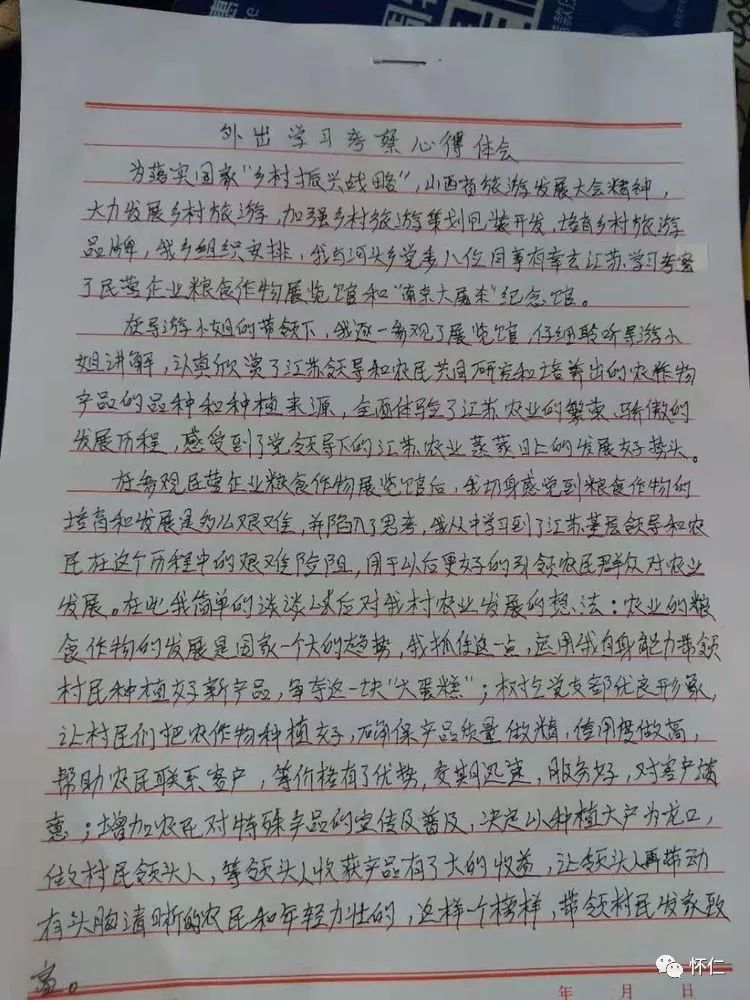 外出学习考察心得体会
为落实国家“乡村振兴战略”，山西省旅游发展大会精神，
大力发展乡村旅游，加强乡村旅游策划包装开发，培育乡村旅游
品牌，我乡组织安排，我与河头乡党委八位同事有幸去江苏学习考察
了民营企业粮食作物展览馆和“南京大屠杀”纪念馆。
在导游小姐的带领下，我逐一参观了展览馆，仔细聆听导游小
姐讲解，认真欣赏了江苏领导和农民共同研究和培养出的农作物
产品的品种和种植来源，全面体验了江苏农业的繁荣、骄傲的
发展历程，感受到了党领导下的江苏农业蒸蒸日上的发展好势头。
在参观民营企业粮食作物展览馆后，我切身感觉到粮食作物的
培育和发展是多么艰难，并陷入了思考，我从中学习到了江苏基层领导和农
民在这个历程中的艰难险阻，用于以后更好的引领农民群众对农业
发展。在此我简单的谈谈以后对我村农业发展的想法：农业的粮
食作物的发展是国家一个大的趋势，我抓住这一点，运用我自身能力带领
村民种植好新产品，争夺这一块“大蛋糕”；树立党支部优良形象，
让村民们把农作物种植好，确保产品质量做精，信用度做高，
帮助农民联系客户，等价格有了优势，交期迅速，服务好，对客户满
意；增加农民对特殊产品的宣传及普及，决定以种植大户为龙口，
做村民领头人，等领头人收获产品有了大的收益，让领头人再带动
有头脑清晰的农民和年轻力壮的，这样一个榜样，带领村民发家致
富。
年 月 日
怀仁